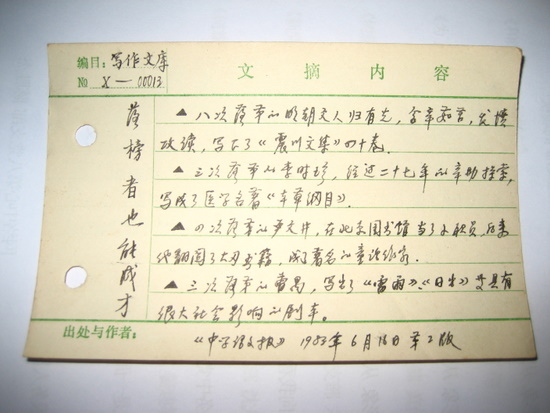 编目：写作文库
№ X—00013
文摘内容
落榜者也能成才
▲八次落第的明朝文人归有光，含辛茹苦，发愤
攻读，写出了《震川文集》四十卷。
▲三次落第的李时珍，经过二十七年的辛勤探索，
写成了医学名著《本草纲目》。
▲四次落第的 ，在北京图书馆当了小职员，后来
他翻阅了大 书籍，成了著名的童话作家。
▲三次落第的曹禺，写出了《雷雨》、《日出》 具有
很大社会影响的剧本。
出处与作者：
《中学语文报》 1983年6月16日第2版